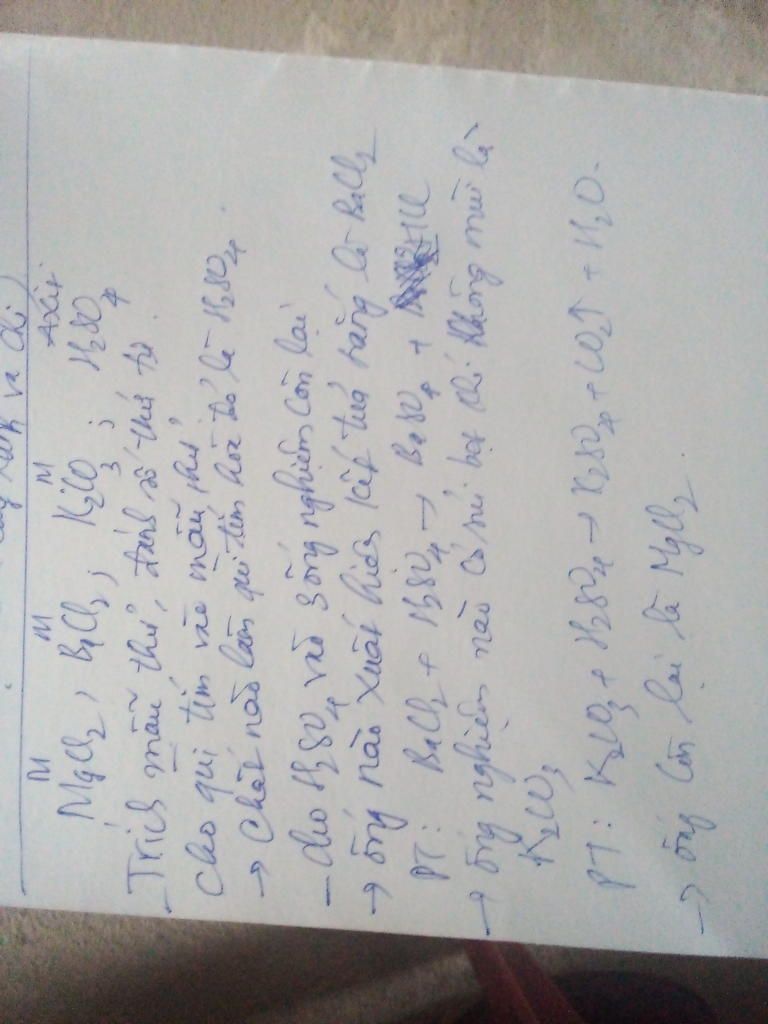 M M M Axit
MgCl2, BaCl2, K2CO3; H2SO4
- Trích mẫu thử, đánh số thứ tự.
Cho quì tím vào mẫu thử
→ Chất nào làm quì tím hoá đỏ là H2SO4.
- cho H2SO4 vào 3 ống nghiệm còn lại
→ ống nào xuất hiện kết tủa trắng là BaCl2
PT: BaCl2 + H2SO4 → BaSO4 + HCl
→ ống nghiệm nào có sủi bọt khí không mùi là
K2CO3
PT: K2CO3 + H2SO4 → K2SO4 + CO2↑ + H2O.
→ ống còn lại là MgCl2.